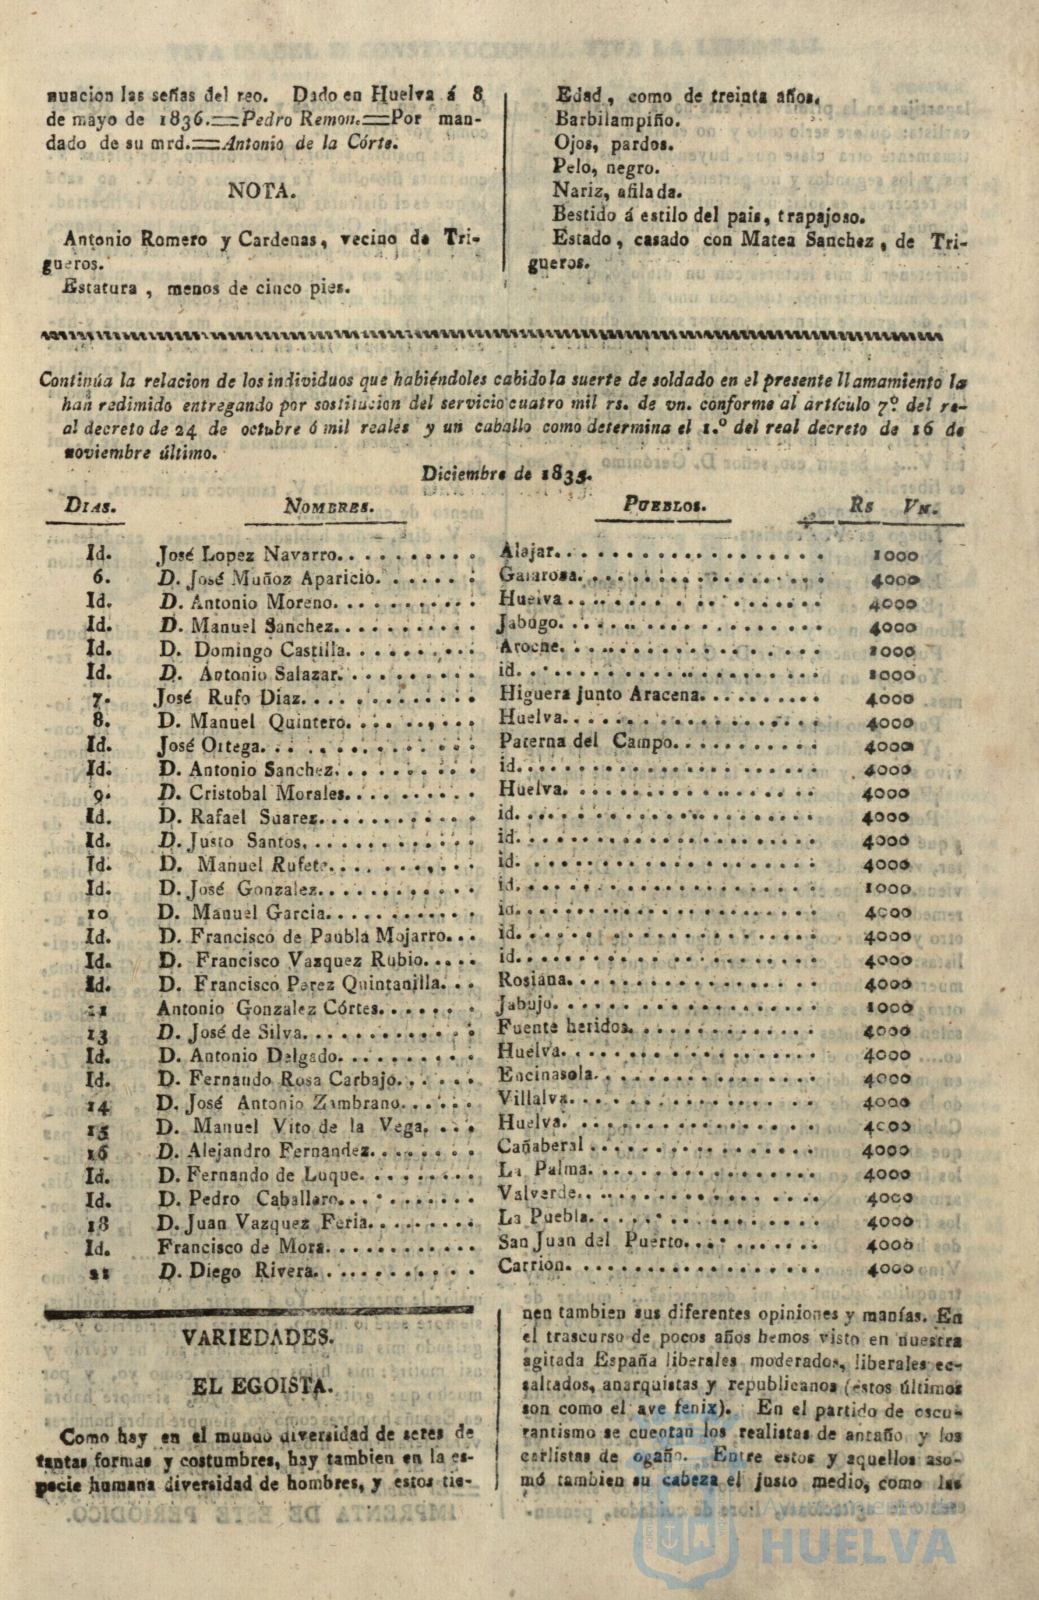 nuacion las señas del reo. Dado en Huelva á 8
de mayo de 1836.=Pedro Remon.=Por man-
dado de su mrd.=Antonio de la Córte.
NOTA.
Antonio Romero y Cardenas, vecino de Tri-
gueros.
Estatura, menos de cinco pies.
Edad, como de treinta años.
Barbilampiño.
Ojos, pardos.
Pelo, negro.
Nariz, afilada.
Bestido á estilo del pais, trapajoso.
Estado, casado con Matea Sanchez, de Tri-
gueros.
Continúa la relacion de los individuos que habiéndoles cabido la suerte de soldado en el presente llamamiento la
han redimido entregando por sostitucion del servicio cuatro mil rs. de vn. conforme al artículo 7º. del re-
al decreto de 24 de octubre ó mil reales y un caballo como determina el 1.º del real decreto de 16 de
noviembre último.
Diciembre de 1835.
DIAS. NOMBRES. PUEBLOS. Rs VN.
Id. José Lopez Navarro. Alajar. 1000
6. D. José Muñoz Aparicio. Galarosa. 4000
Id. D. Antonio Moreno. Huelva 4000
Id. D. Manuel Sanchez. Jabugo. 4000
Id. D. Domingo Castilla. Aroche. 1000
Id. D. Antonio Salazar. id. 1000
7. José Rufo Diaz. Higuera junto Aracena. 4000
8. D. Manuel Quintero. Huelva. 4000
Id. José Ortega. Paterna del Campo. 4000
Id. D. Antonio Sanchez. id. 4000
9. D. Cristobal Morales. Huelva. 4000
Id. D. Rafael Suarez. id. 4000
Id. D. Justo Santos. id. 4000
Id. D. Manuel Rufete. id. 4000
Id. D. José Gonzalez. id. 1000
10 D. Manuel Garcia. id. 4000
Id. D. Francisco de Paubla Mojarro. id. 4000
Id. D. Francisco Vazquez Rubio. id. 4000
Id. D. Francisco Perez Quintanilla. Rosiana. 4000
11 Antonio Gonzalez Córtes. Jabujo. 1000
13 D. José de Silva. Fuente heridos. 4000
Id. D. Antonio Delgado. Huelva. 4000
Id. D. Fernando Rosa Carbajo. Encinasola. 4000
14 D. José Antonio Zambrano. Villalva. 4000
15 D. Manuel Vito de la Vega. Huelva. 4000
16 D. Alejandro Fernandez. Cañaberal 4000
Id. D. Fernando de Luque. La Palma. 4000
Id. D. Pedro Caballero. Valverde. 4000
18 D. Juan Vazquez Feria. La Puebla. 4000
Id. Francisco de Mora. San Juan del Puerto. 4000
21 D. Diego Rivera. Carrion. 4000
VARIEDADES.
EL EGOISTA.
Como hay en el mundo diversidad de seres de
tantas formas y costumbres, hay tambien en la es-
pecie humana diversidad de hombres, y estos tie-
nen tambien sus diferentes opiniones y manías. En
el trascurso de pocos años hemos visto en nuestra
agitada España liberales moderados, liberales ec-
saltados, anarquistas y republicanos (estos últimos
son como el ave fenix). En el partido de oscu-
rantismo se cuentan los realistas de antaño y los
carlistas de ogaño. Entre estos y aquellos aso-
mó tambien su cabeza el justo medio, como las
Ayuntamiento de
HUELVA